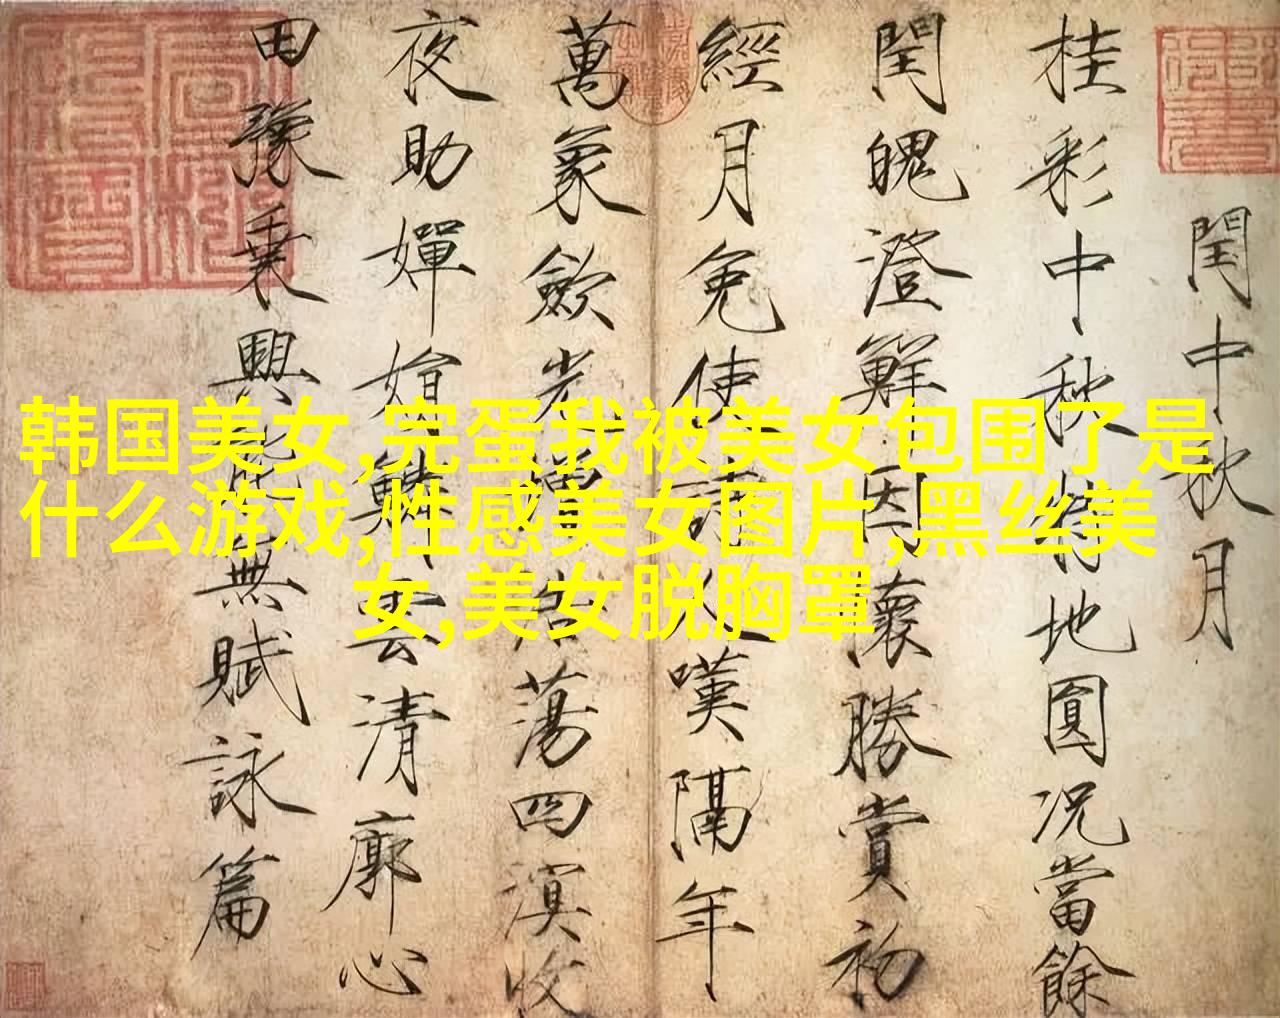 閏中秋月
桂彩中秋特地圓况當餘
閏魄澄鮮因懷勝賞初
經月免使詩人嘆隔年
萬象歛光增浩蕩四溟收
夜助嬋娟鱗雲清廓心
田豫乗興能無賦詠篇
韩国美女,完蛋我被美女包围了是
什么游戏,性感美女图片,黑丝美
女,美女脱胸罩